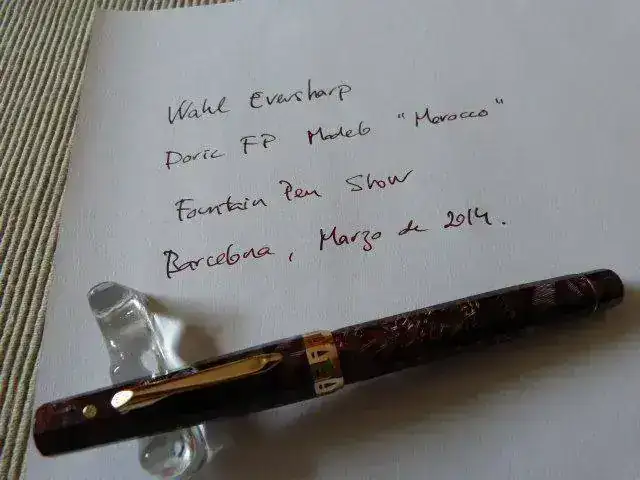 Wahl Eversharp
Doric FP Modelo "Morocco"
Fountain Pen Show
Barcelona, Marzo de 2014.